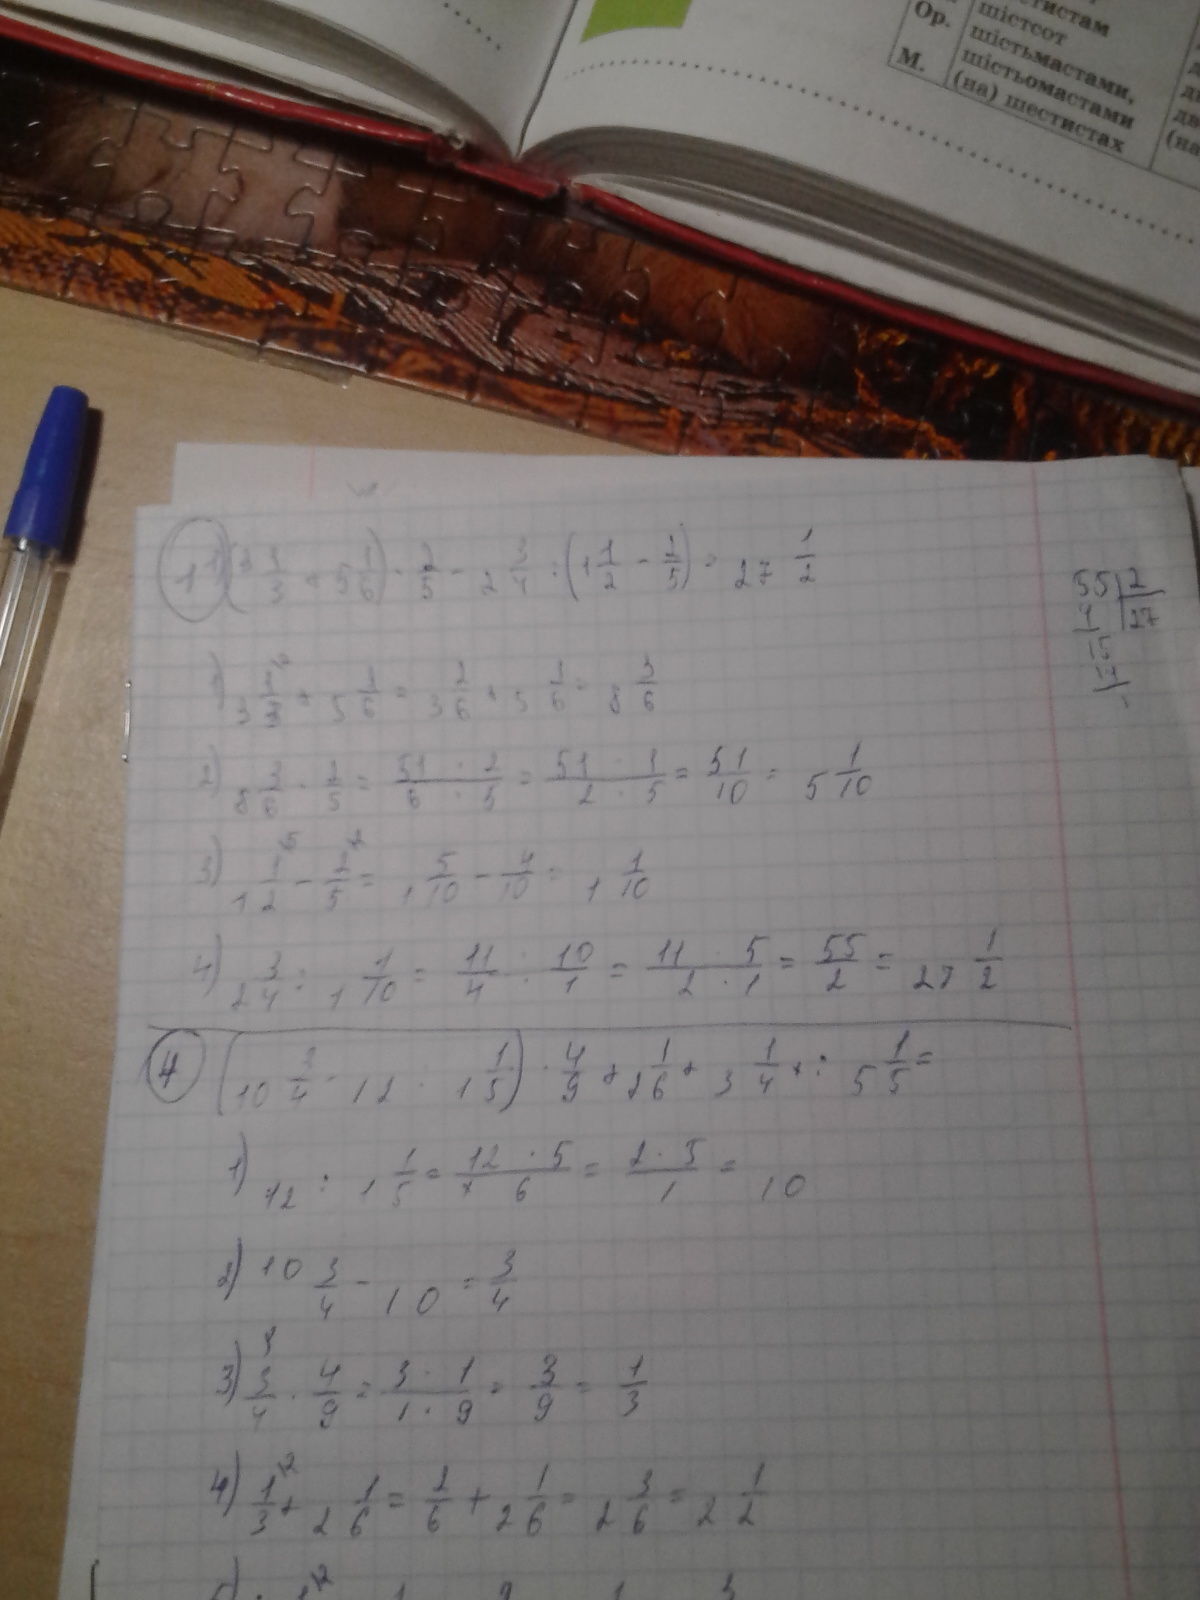 Ор.
М.
шістсот
шістьмастами,
шістьомастами
(на) шестистах
(на
1 1) (3 1/3 + 5 1/6) · 2/5 - 2 3/4 : (1 1/2 - 2/5) = 27 1/2
55 | 2
4 | 27
15
14
1) 3 1/3 + 5 1/6 = 3 2/6 + 5 1/6 = 8 3/6
2) 8 3/6 · 2/5 = 51 · 2 / 6 · 5 = 51 · 1 / 2 · 5 = 51/10 = 5 1/10
3) 1 1/2 - 2/5 = 1 5/10 - 4/10 = 1 1/10
4) 2 3/4 : 1 1/10 = 11/4 : 10/1 = 11 · 5 / 2 · 1 = 55/2 = 27 1/2
4 (10 3/4 - 12 : 1 1/5) · 4/9 + 2 1/6 + 3 1/4 : 5 1/5 =
1) 12 : 1 1/5 = 12 · 5 / 6 = 2 · 5 / 1 = 10
2) 10 3/4 - 10 = 3/4
3) 3/4 · 4/9 = 3 · 1 / 1 · 9 = 3/9 = 1/3
4) 1/3 + 2 1/6 = 2/6 + 2 1/6 = 2 3/6 = 2 1/2